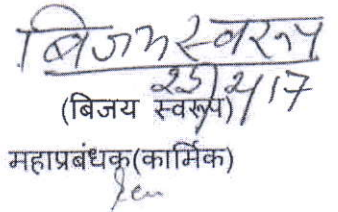 बिजय स्वरूप
23/2/17
(बिजय स्वरूप)
महाप्रबंधक(कार्मिक)